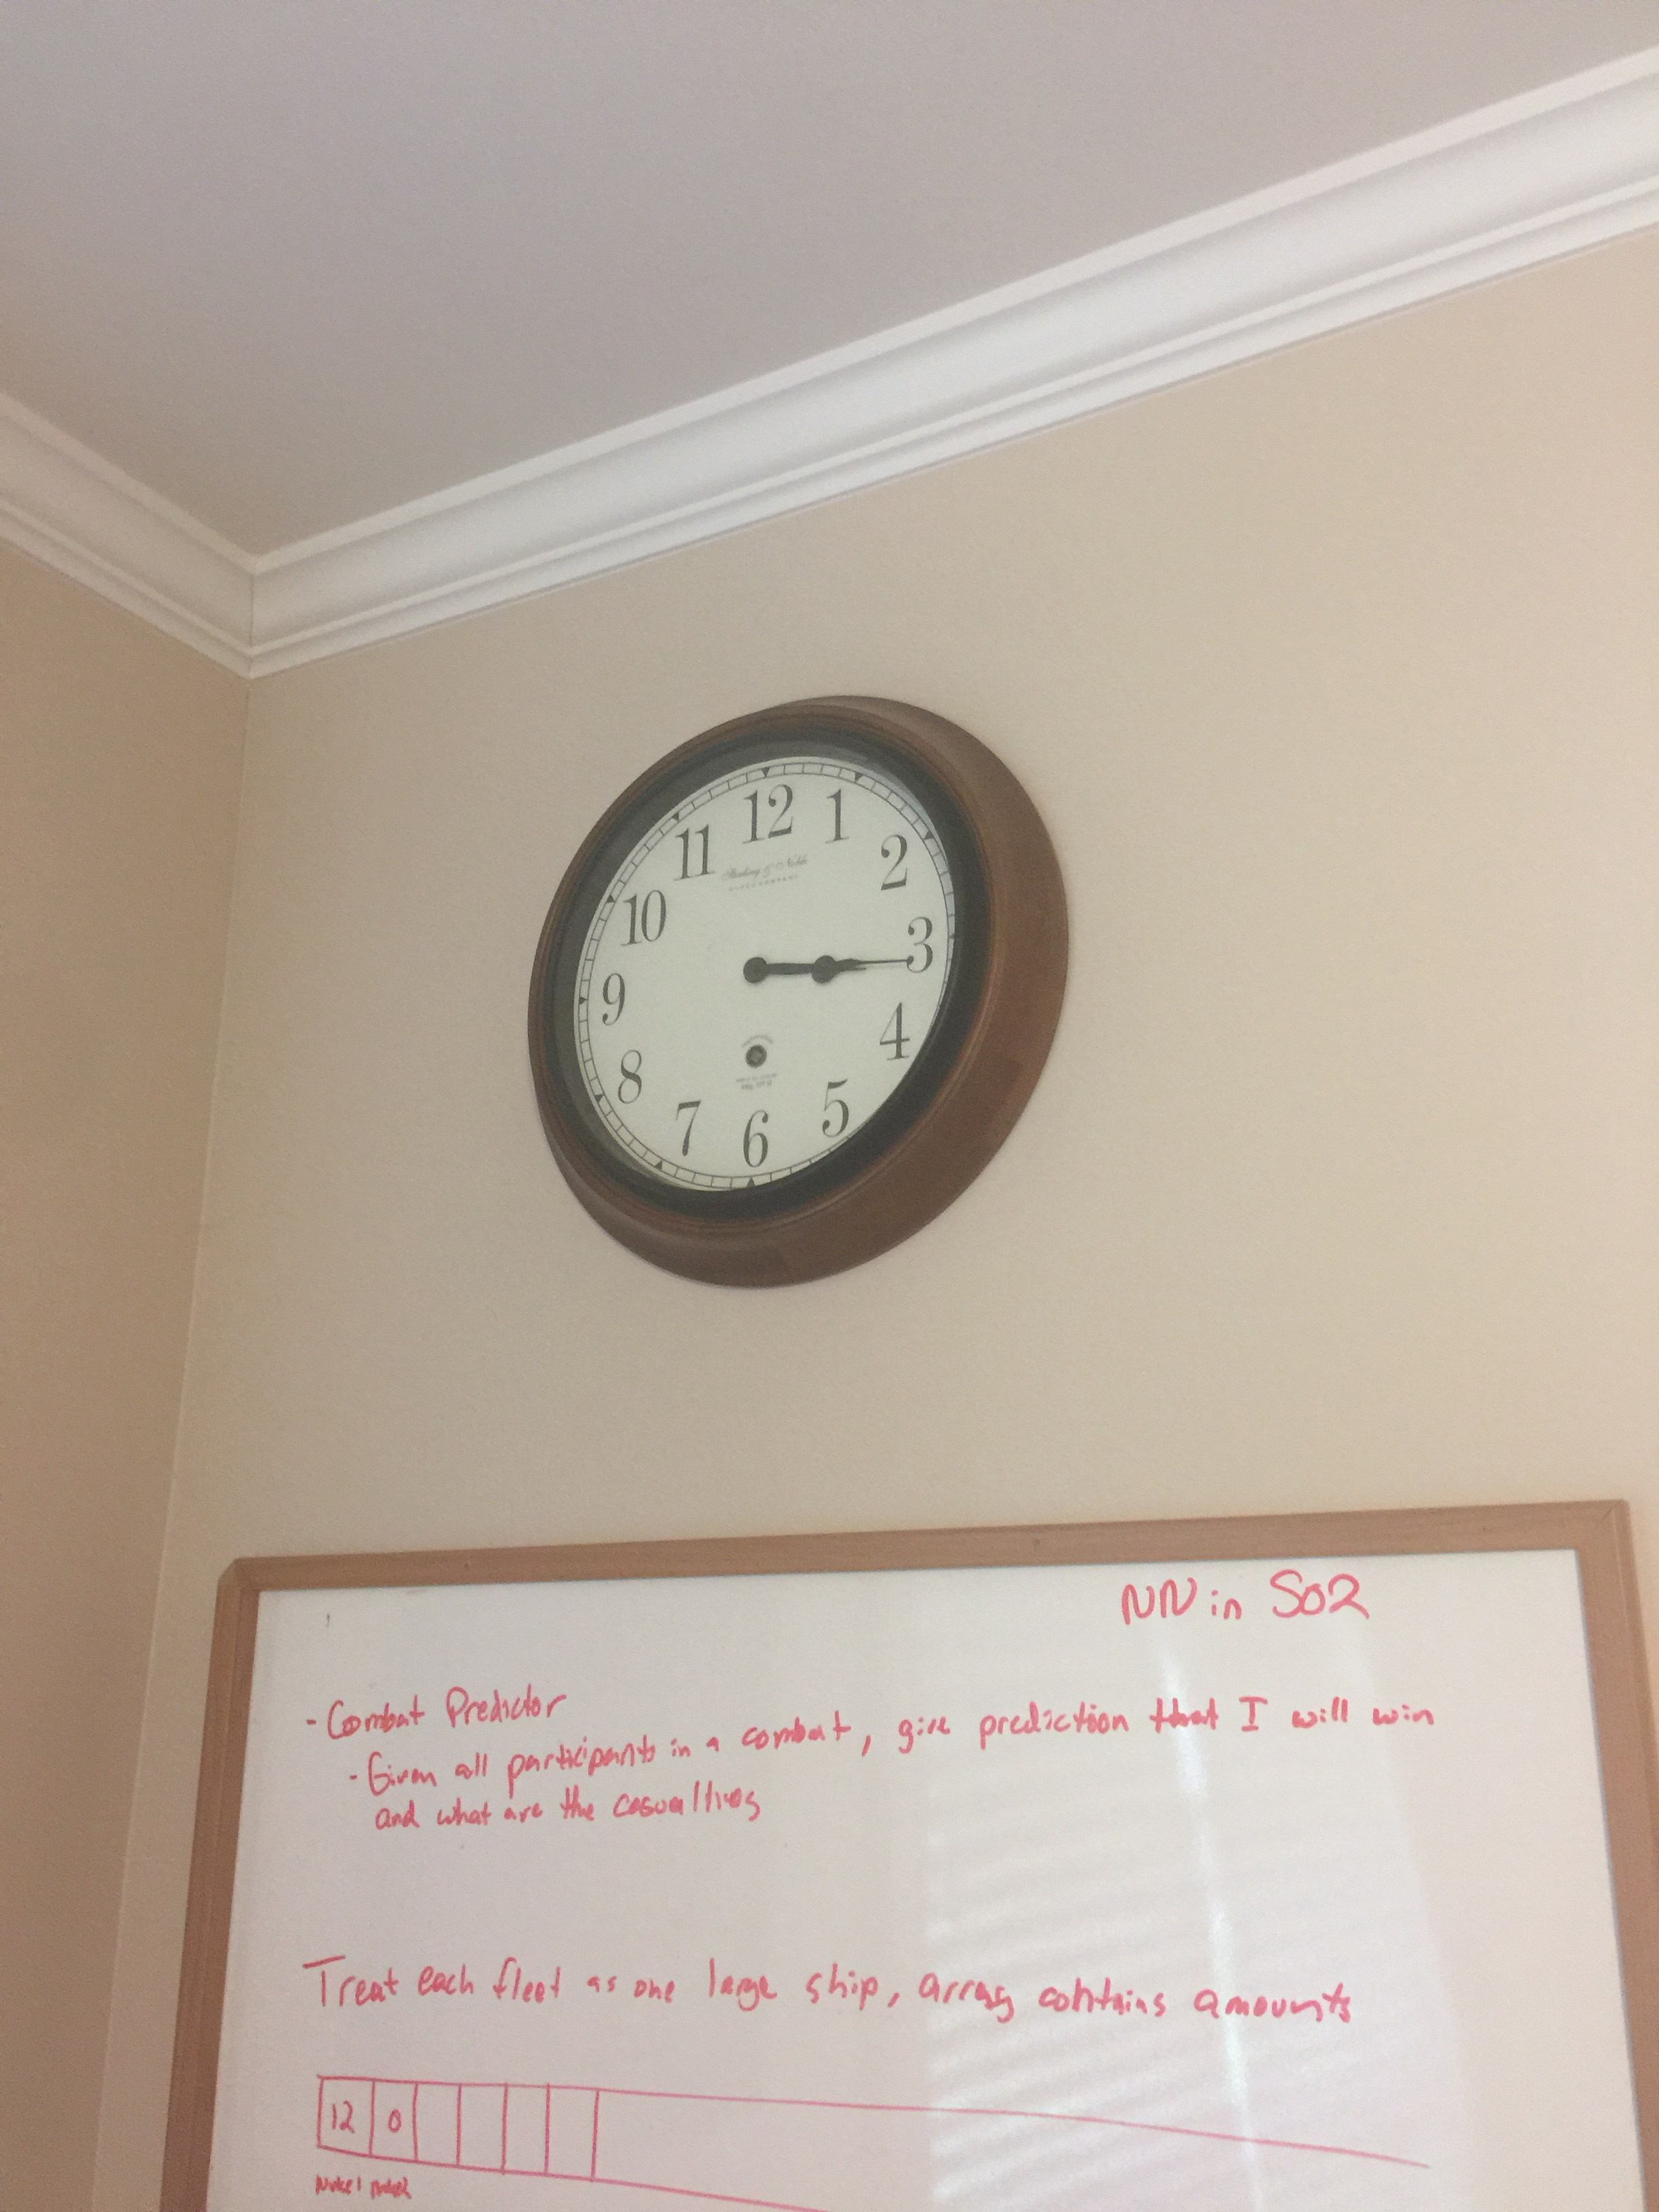 12
1
2
3
4
5
6
7
8
9
10
11
Sterling & Noble
CLOCK COMPANY
NN in So2
- Combat Predictor
- Given all participants in a combat, give prediction that I will win
and what are the casualties
Treat each fleet as one large ship, array contains amounts
12 0